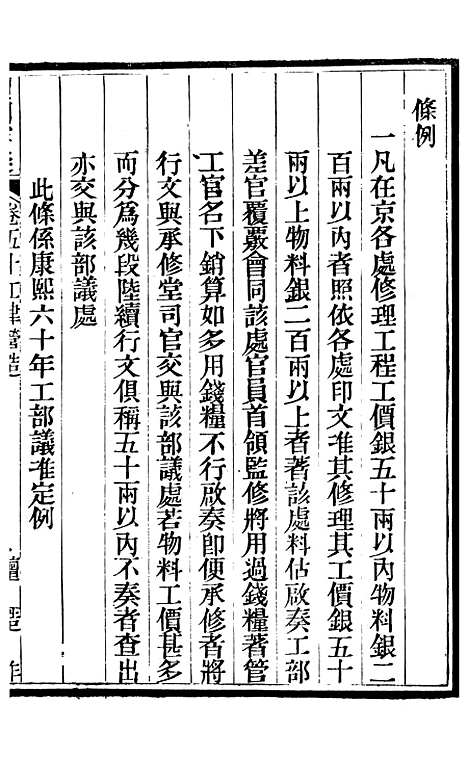 條例
一凡在京各處修理工程工價銀五十兩以內物料銀二
百兩以內者照依各處印文准其修理其工價銀五十
兩以上物料銀二百兩以上者著該處料估啟奏工部
差官覆覈會同該處官員首領監修將用過錢糧著管
工官名下銷算如多用錢糧不行啟奏卽便承修者將
行文與承修堂司官交與該部議處若物料工價甚多
而分為幾段陸續行文俱稱五十兩以內不奏者查出
亦交與該部議處
此條係康熙六十年工部議准定例
卷五十工律營造